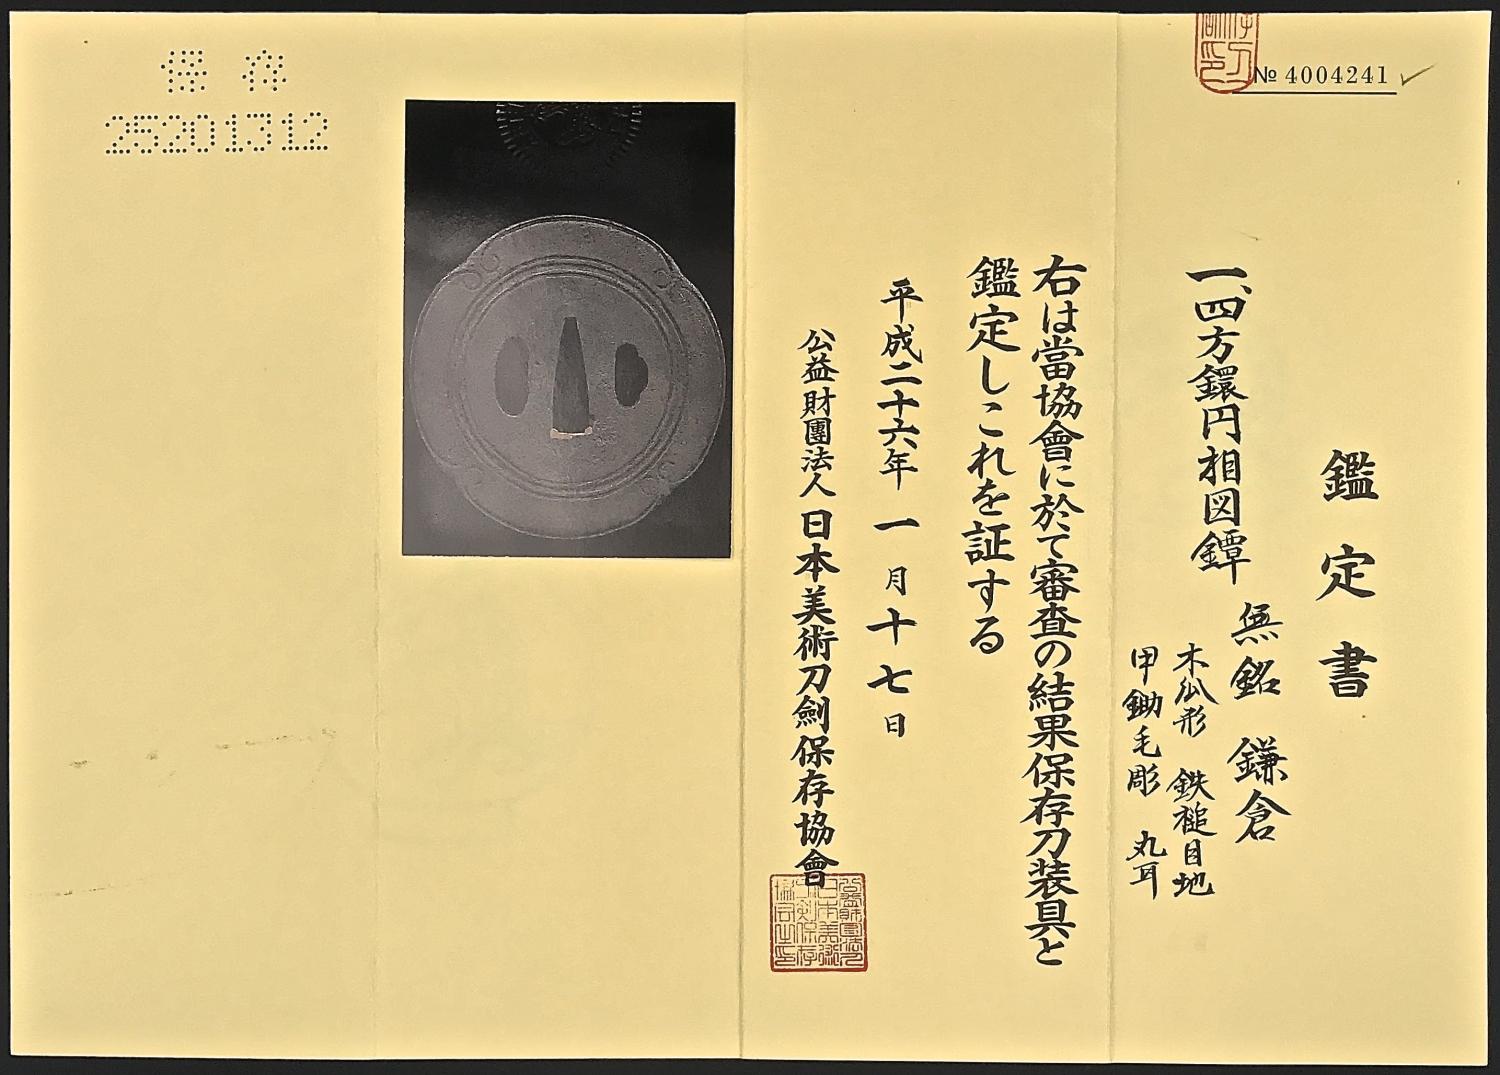 № 4004241
鑑定書
一、四方鐶円相図鐔
無銘 鎌倉
木瓜形 鉄槌目地
甲鋤毛彫 丸耳
右は當協會に於て審査の結果保存刀装具と
鑑定しこれを証する
平成二十六年一月十七日
公益財團法人日本美術刀劍保存協會
保存
25201312